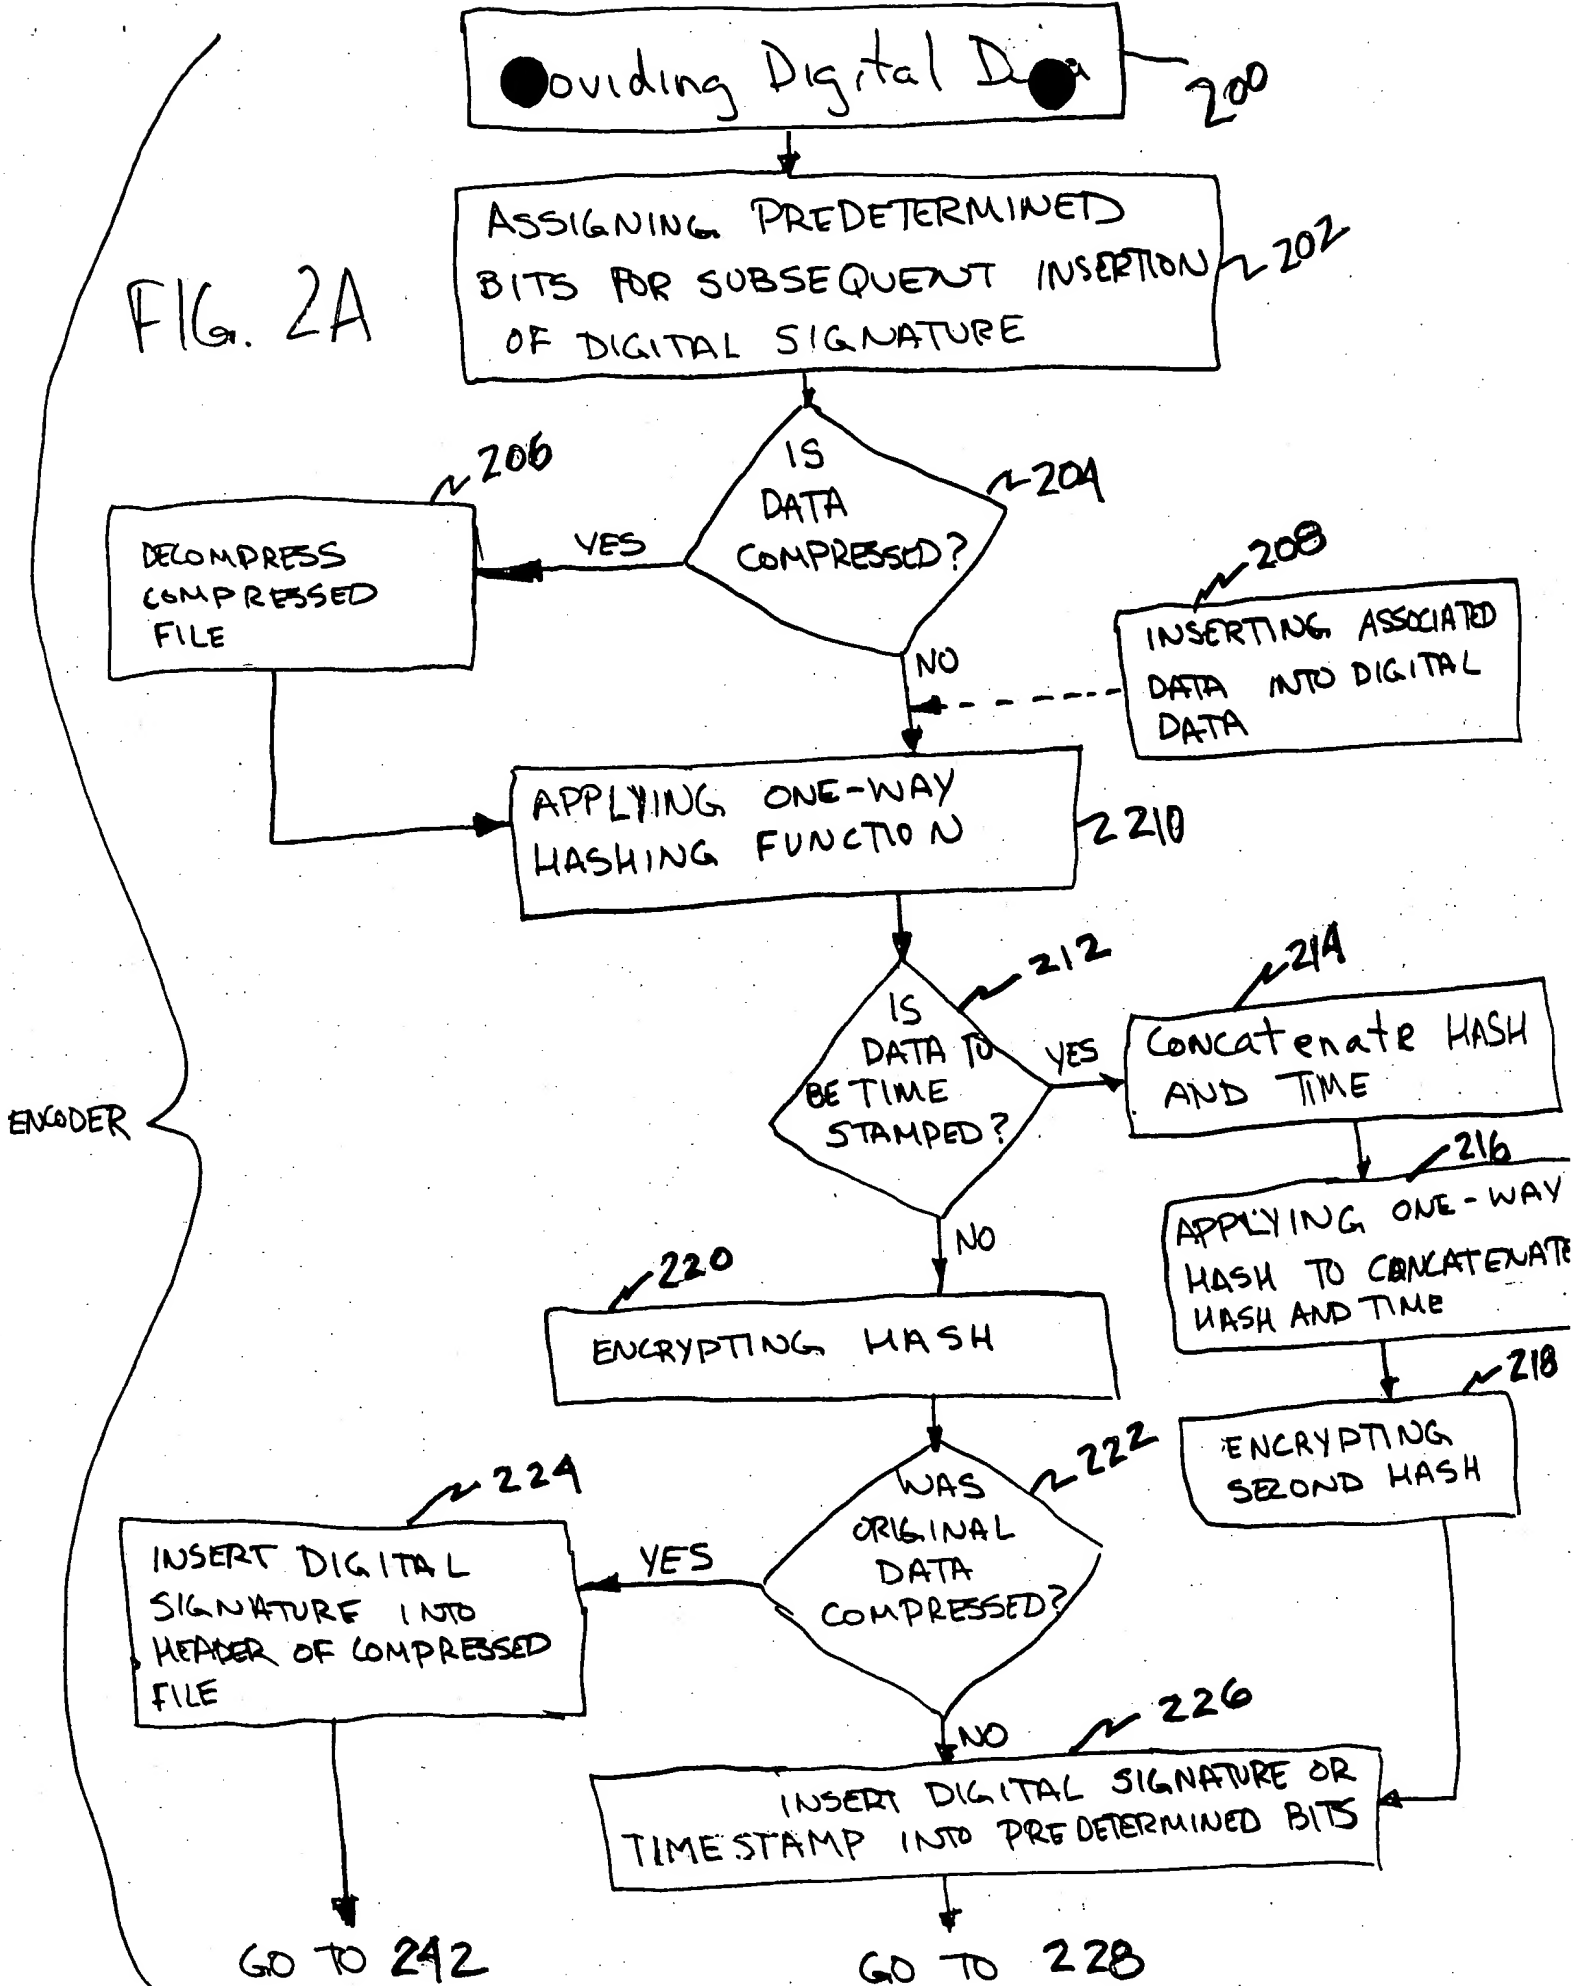 oviding Digital D
200
ASSIGNING PREDETERMINED
BITS FOR SUBSEQUENT INSERTION
OF DIGITAL SIGNATURE
202
FIG. 2A
IS
DATA
COMPRESSED?
204
206
YES
DECOMPRESS
COMPRESSED
FILE
NO
208
INSERTING ASSOCIATED
DATA INTO DIGITAL
DATA
APPLYING ONE-WAY
HASHING FUNCTION
210
212
IS
DATA TO
BE TIME
STAMPED?
YES
214
CONCatenate HASH
AND TIME
ENCODER
216
APPLYING ONE-WAY
HASH TO CONCATENATE
HASH AND TIME
NO
220
ENCRYPTING HASH
218
ENCRYPTING
SECOND HASH
222
WAS
ORIGINAL
DATA
COMPRESSED?
YES
224
INSERT DIGITAL
SIGNATURE INTO
HEADER OF COMPRESSED
FILE
NO
226
INSERT DIGITAL SIGNATURE OR
TIME STAMP INTO PREDETERMINED BITS
GO TO 242
GO TO 228